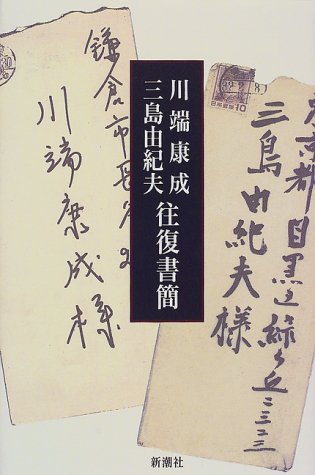 川端康成
三島由紀夫
往復書簡
京都目黒区緑ヶ丘二三二三
三島由紀夫様
10
鎌倉市長谷2
川端康成様
新潮社